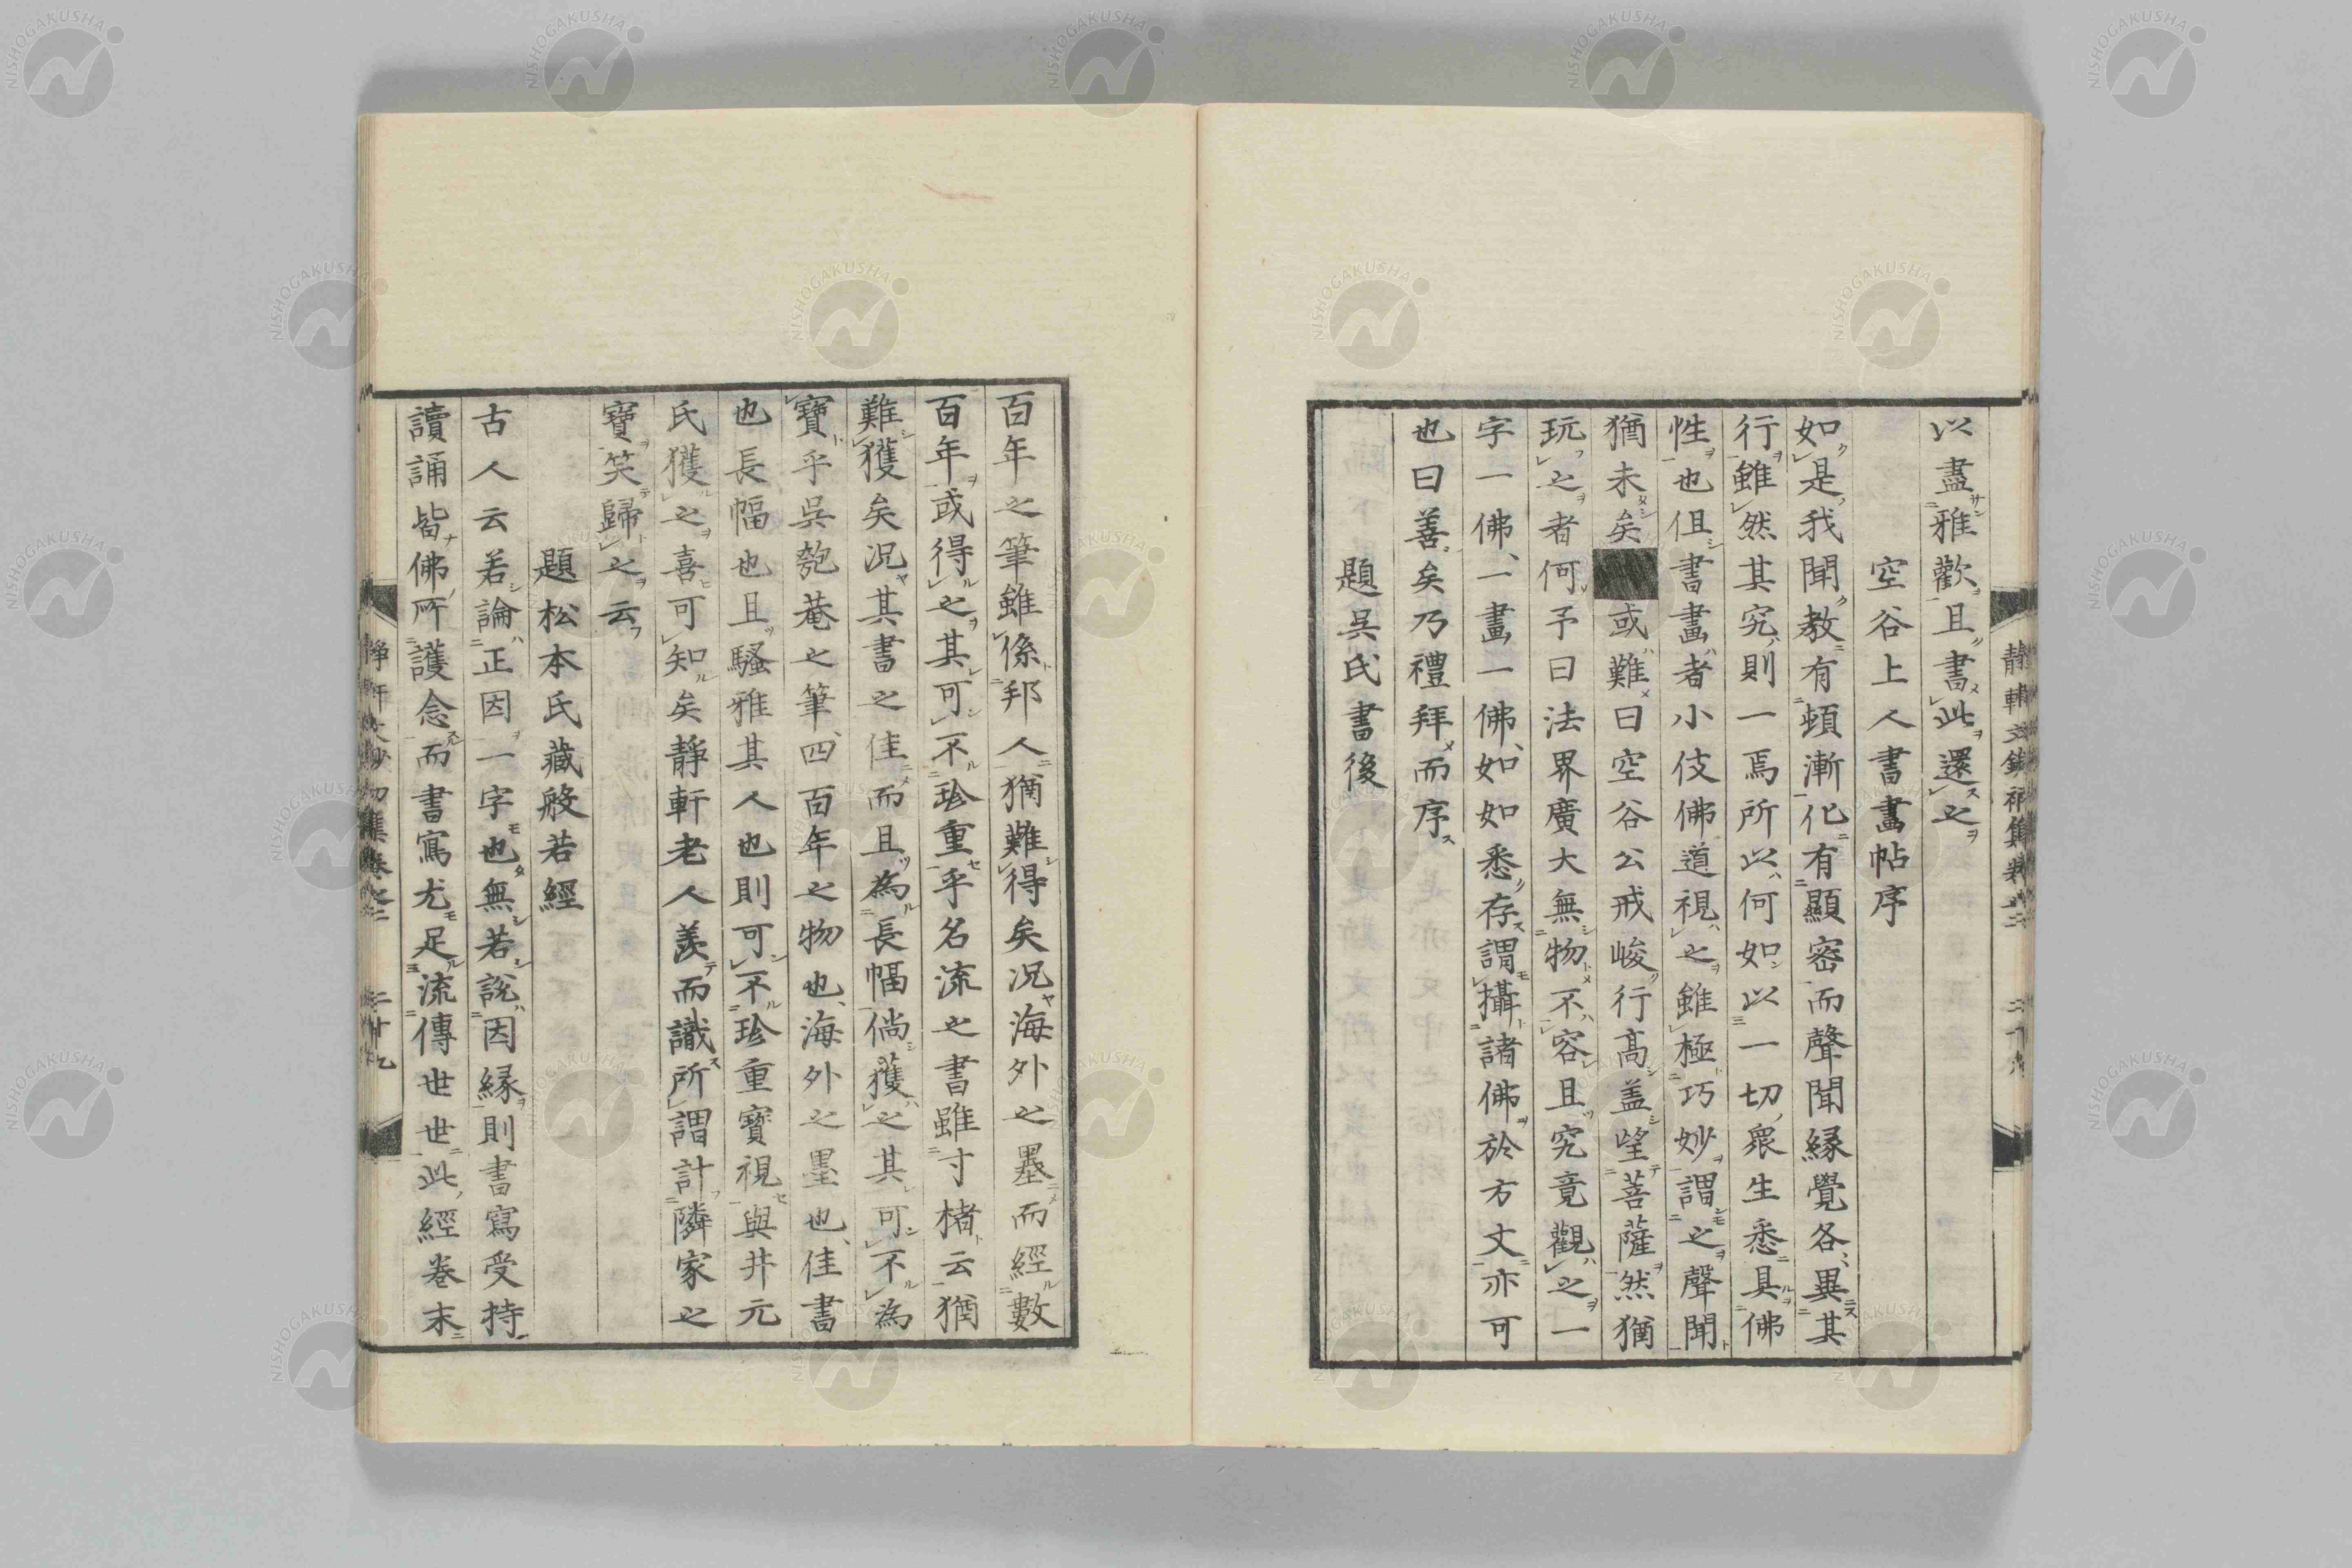 以盡雅歡且書此還之
空谷上人書畫帖序
如是我聞教有頓漸化有顯密而聲聞緣覺各異其
行雖然其究則一焉所以何如以一切衆生悉具佛
性也但書畫者小伎佛道視之雖極巧妙謂之聲聞
猶未矣或難曰空谷公戒峻行高盖望菩薩然猶
玩之者何予曰法界廣大無物不容且究竟觀之一
字一佛一畫一佛如如悉存謂攝諸佛於方丈亦可
也曰善矣乃禮拜而序
題吳氏書後
百年之筆雖係邦人猶難得矣况海外之墨而經數
百年或得之其可不珍重乎名流之書雖寸楮云猶
難獲矣况其書之佳而且為長幅倘獲之其可不為
寶乎吳匏菴之筆四百年之物也海外之墨也佳書
也長幅也且騷雅其人也則可不珍重寶視與井元
氏獲之喜可知矣靜軒老人羨而識所謂計隣家之
寶笑歸之云
題松本氏藏般若經
古人云若論正因一字也無若說因緣則書寫受持
讀誦皆佛所護念而書寫尤足流傳世世此經卷末
NISHOGAKUSHA